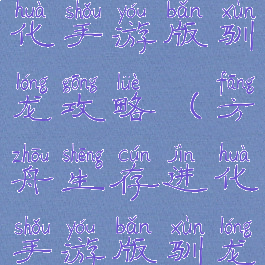 huà shǒu yóu bǎn xùn
化手游版驯
lóng gōng lüè fāng
龙攻略（方
zhōu shēng cún jìn huà
舟生存进化
shǒu yóu bǎn xùn lóng
手游版驯龙